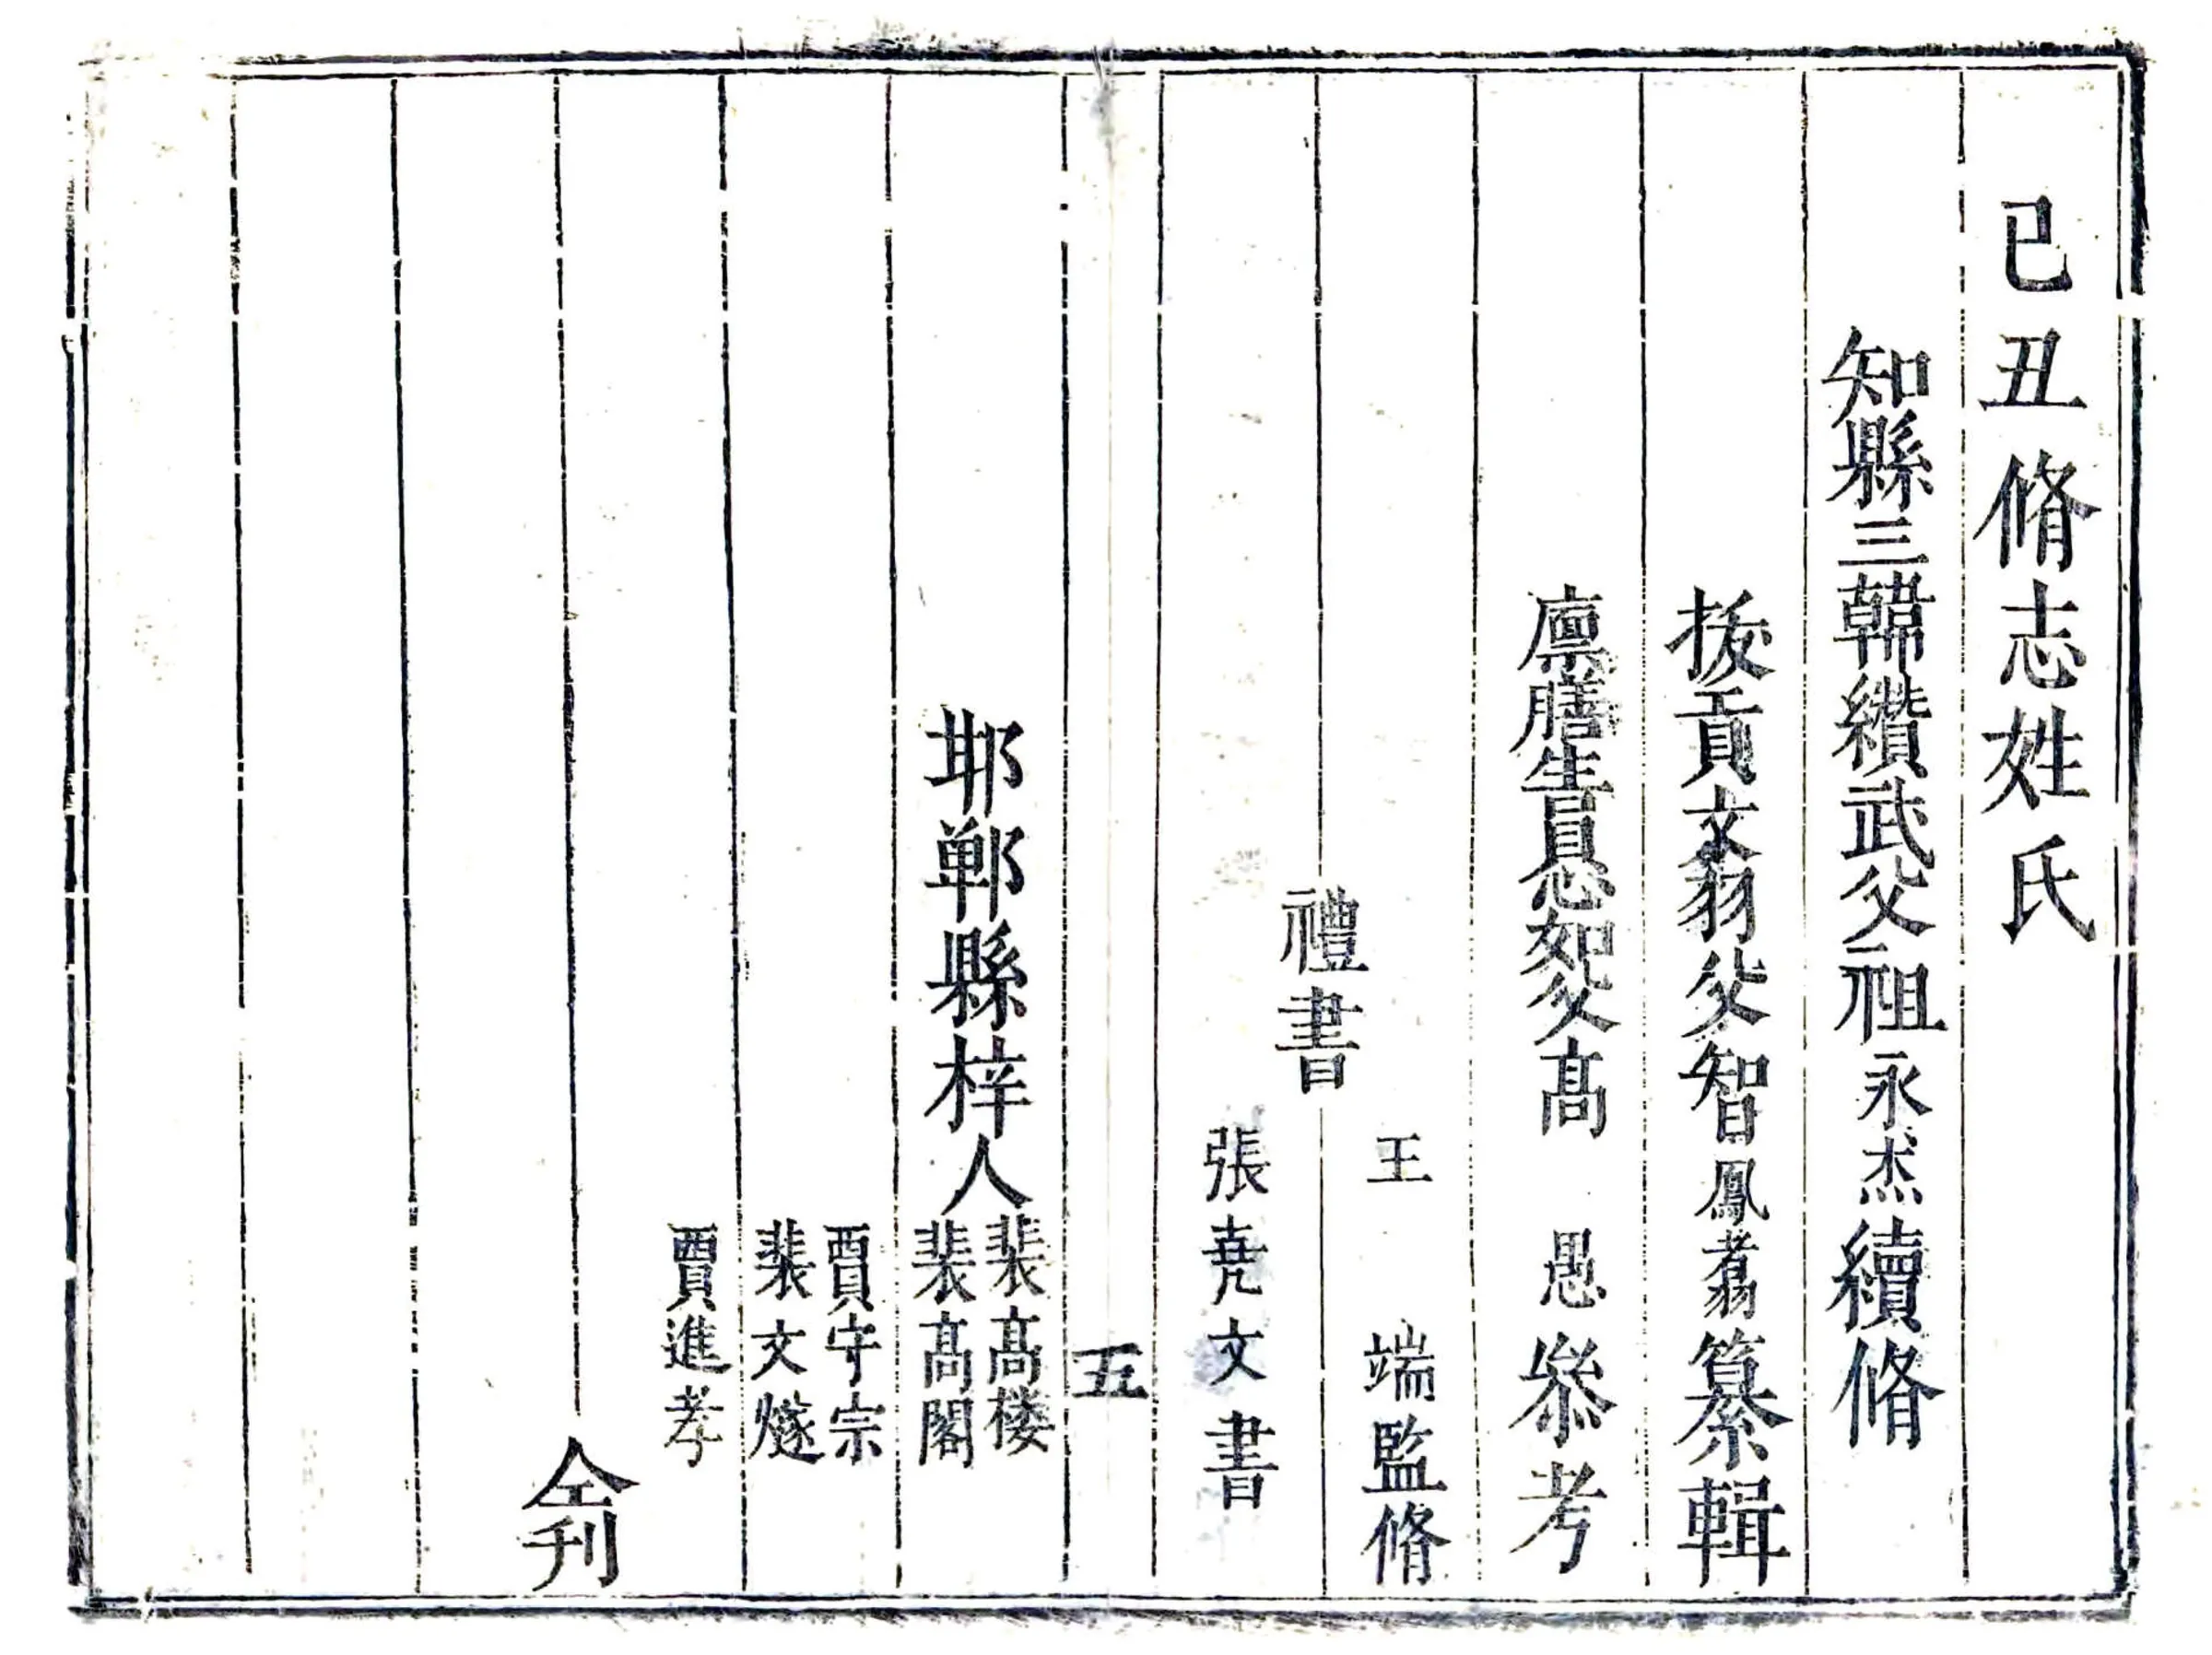 己丑脩志姓氏
知縣三韓纘武父祖永杰續脩
拔貢文翁父智鳳翥纂輯
廪膳生員忍恕父高愚叅考
禮書
王端監脩
張堯文書
五
邯鄲縣梓人
裴髙楼
裴髙閣
賈守宗
裴文燧
賈進孝
仝刊